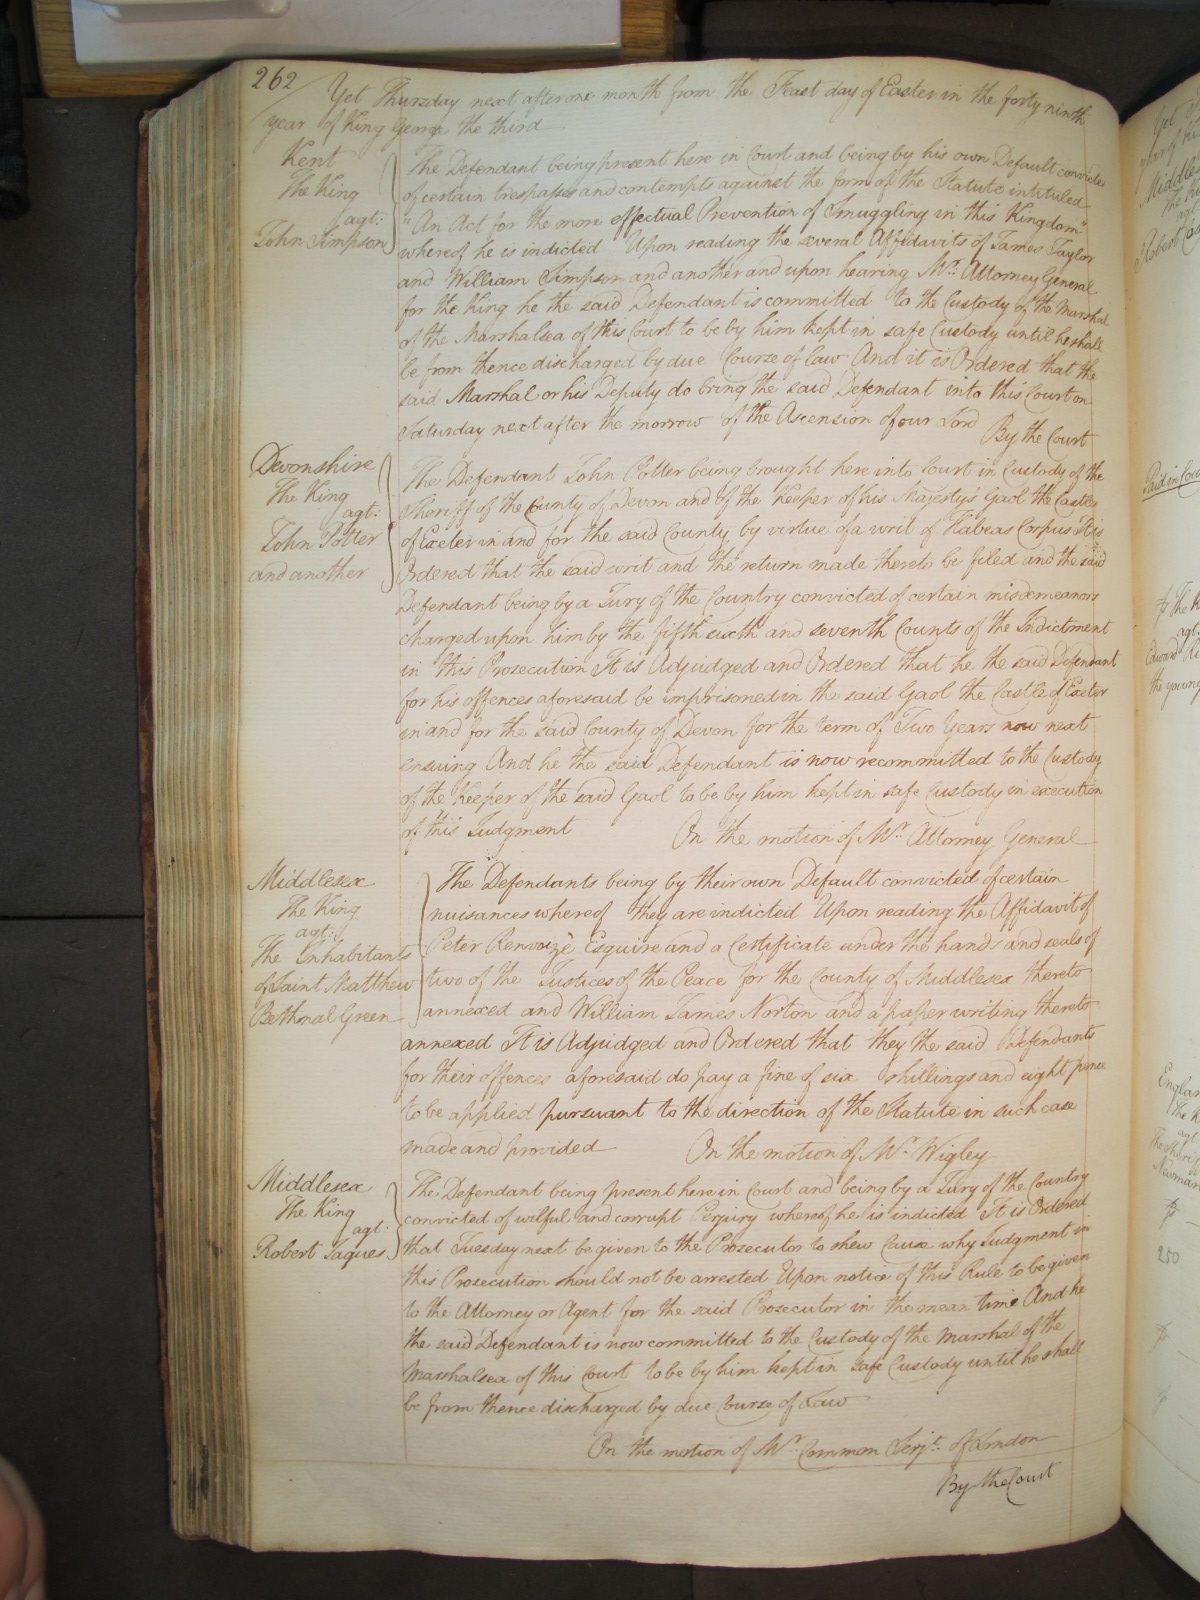 262
Yet Thursday next after one month from the Feast day of Easter in the forty ninth
year of King George the third
Kent
The King
agt:
John Simpson
The Defendant being present here in Court and being by his own Default convicted
of certain trespasses and contempts against the form of the Statute intituled
"An Act for the more effectual Prevention of Smuggling in this Kingdom"
whereof he is indicted Upon reading the several Affidavits of James Taylor
and William Simpson and another and upon hearing Mr. Attorney General
for the King he the said Defendant is committed to the Custody of the Marshal
of the Marshalsea of this Court to be by him kept in safe Custody until he shall
be from thence discharged by due Course of Law And it is Ordered that the
said Marshal or his Deputy do bring the said Defendant into this Court on
Saturday next after the morrow of the Ascension of our Lord By the Court
Devonshire
The King
agt:
John Potter
and another
The Defendant John Potter being brought here into Court in Custody of the
Sheriff of the County of Devon and of the Keeper of his Majesty's Gaol the Castle
of Exeter in and for the said County by virtue of a writ of Habeas Corpus It is
Ordered that the said writ and the return made thereto be filed and the said
Defendant being by a Jury of the Country convicted of certain misdemeanors
charged upon him by the fifth sixth and seventh Counts of the Indictment
in this Prosecution It is Adjudged and Ordered that he the said Defendant
for his offences aforesaid be imprisoned in the said Gaol the Castle of Exeter
in and for the said County of Devon for the term of Two Years now next
ensuing And he the said Defendant is now recommitted to the Custody
of the Keeper of the said Gaol to be by him kept in safe Custody in execution
of this Judgment On the motion of Mr. Attorney General
Middlesex
The King
agt:
The Inhabitants
of Saint Matthew
Bethnal Green
The Defendants being by their own Default convicted of certain
nuisances whereof they are indicted Upon reading the Affidavit of
Peter Renvoizè Esquire and a Certificate under the hands and seals of
two of the Justices of the Peace for the County of Middlesex thereto
annexed and William James Norton and a paper writing thereto
annexed It is Adjudged and Ordered that they the said Defendants
for their offences aforesaid do pay a fine of six shillings and eight pence
to be applied pursuant to the direction of the Statute in such case
made and provided On the motion of Mr. Wigley
Middlesex
The King
agt:
Robert Jaques
The Defendant being present here in Court and being by a Jury of the Country
convicted of wilful and corrupt Perjury whereof he is indicted It is Ordered
that Tuesday next be given to the Prosecutor to shew Cause why Judgment in
this Prosecution should not be arrested Upon notice of this Rule to be given
to the Attorney or Agent for the said Prosecutor in the mean time And he
the said Defendant is now committed to the Custody of the Marshal of the
Marshalsea of this Court to be by him kept in safe Custody until he shall
be from thence discharged by due Course of Law
On the motion of Mr. Common Serjt. of London
By the Court